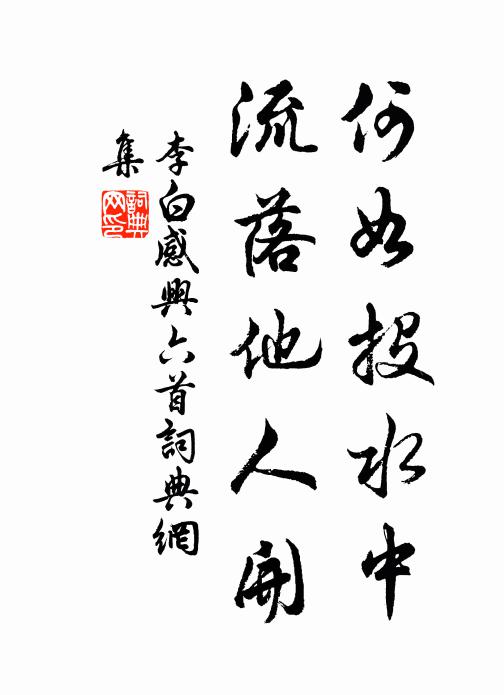 何如投水中
流落他人開
李白感興六首詞典網
集
詞典
网印